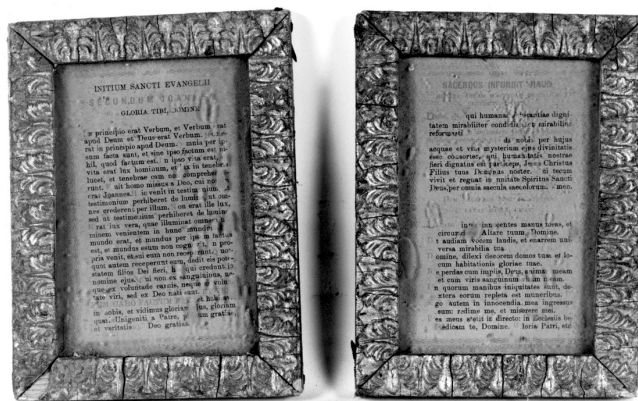 INITIUM SANCTI EVANGELII
GLORIA TIBI, DOMINE
principio erat Verbum, et Verbum erat
apud Deum et Deus erat Verbum.
rat in principio apud Deum. mnia per ip-
sum facta sunt, et sine ipso factum est ni-
hil, quod factum est. n ipso vita erat,
vita erat lux hominum, et lux in tenebris
lucet, et tenebrae eam non comprehende-
runt. uit homo missus a Deo, cui no
erat Joannes. ic venit in testimonium,
testimonium perhiberet de lumine ut om-
nes crederent per illum. on erat ille lux,
sed ut testimonium perhiberet de lumine
rat lux vera, quae illuminat omnem
minem venientem in hunc mundum.
mundo erat, et mundus per ipsum factus
est, et mundus eum non cognovit. n pro-
pria venit, et sui eum non receperunt.
quot autem receperunt eum, dedit eis pot-
estatem filios Dei fieri, qui credunt in
nomine ejus, ui non ex sanguinibus, ne-
que ex voluntate carnis, neque volun-
tate viri, sed ex Deo nati sunt.
et habi
in nobis, et vidimus gloriam jus, gloriam
quasi Unigeniti a Patre, plenum gratiae
et veritatis. Deo gratias
SACERDOS INFUNDIT
qui humanae substantiae digni-
tatem mirabiliter condidisti, et mirabilius
reformasti
da nobis per hujus
aquae et vini mysterium ejus divinitatis
esse consortes, qui humanitatis nostrae
fieri dignatus est particeps, Jesus Christus
Filius tuus Dominus noster. ui tecum
vivit et regnat in unitate Spiritus Sancti
Deus, per omnia saecula saeculorum. men.
inter innocentes manus meas, et
circumdabo Altare tuum, Domine.
t audiam vocem laudis, et enarrem uni-
versa mirabilia tua
omine, dilexi decorem domus tuae et lo-
cum habitationis gloriae tuae.
e perdas cum impiis, Deus, animam meam
et cum viris sanguinum vitam meam.
n quorum manibus iniquitates sunt, de-
xtera eorum repleta est muneribus.
go autem in innocentia mea ingressus
sum: redime me, et miserere mei.
es meus stetit in directo: in Ecclesiis be-
nedicam te, Domine. loria Patri, etc